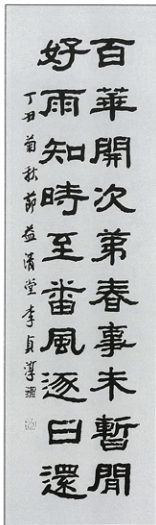 百華開次第春事未暫閒
好雨知時至番風逐日還
丁丑菊秋節益清堂李貞淳